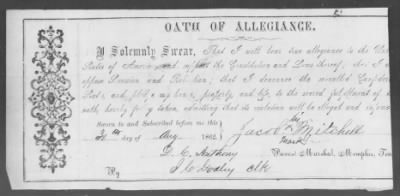 OATH OF ALLEGIANCE.
I Solemnly Swear, That I will bear true allegiance to the United
States of America and support the Constitution and Laws thereof, that I
oppose Secession and Rebellion, that I denounce the so-called Confederate
and pledge my honor, property, and life, to the sacred fulfilment of
oath, hereby freely taken, admitting that its violation will be illegal and infamous
Sworn to and Subscribed before me this
day of Aug 1862.
Jacob his X mark Mitchell
D. C. Anthony
Provost Marshal, Memphis, Tenn
By Clk